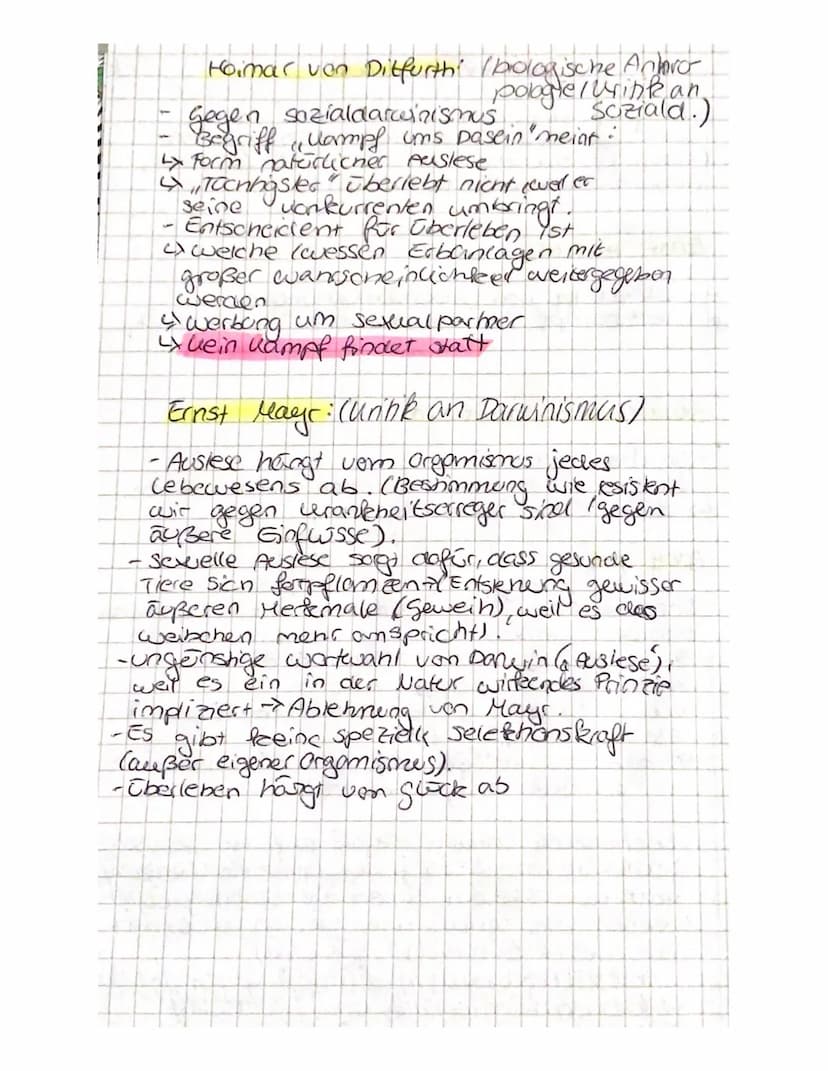 Hoimar von Ditfurth: (biologische Anthro
pologie/Kritik an
Soziald.)
- Gegen Sozialdarwinismus
- Begriff „Kampf ums Dasein" meint:
↳ Form natürlicher Auslese
↳ „Tüchtigster" überlebt nicht, weil er
seine Konkurrenten umbringt.
- Entscheident für Überleben ist
↳ welche/wessen Erbanlagen mit
großer Wahrscheinlichkeit weitergegeben
werden
↳ Werbung um Sexualpartner
↳ kein Kampf findet statt
Ernst Mayr: (Kritik an Darwinismus)
- Auslese hängt vom Organismus jedes
Lebewesens ab. (Bestimmung wie resistent
wir gegen Krankheitserreger sind/gegen
äußere Einflüsse).
- Sexuelle Auslese sorgt dafür, dass gesunde
Tiere sich fortpflanzen → (Entstehung gewisser
äußeren Merkmale (Geweih), weil es das
Weibchen mehr anspricht).
- ungünstige Wortwahl von Darwin (Auslese),
weil es ein in der Natur wirkendes Prinzip
impliziert → Ablehnung von Mayr.
- Es gibt keine spezielle Selektionskraft
(außer eigener Organismus).
- Überleben hängt von Glück ab